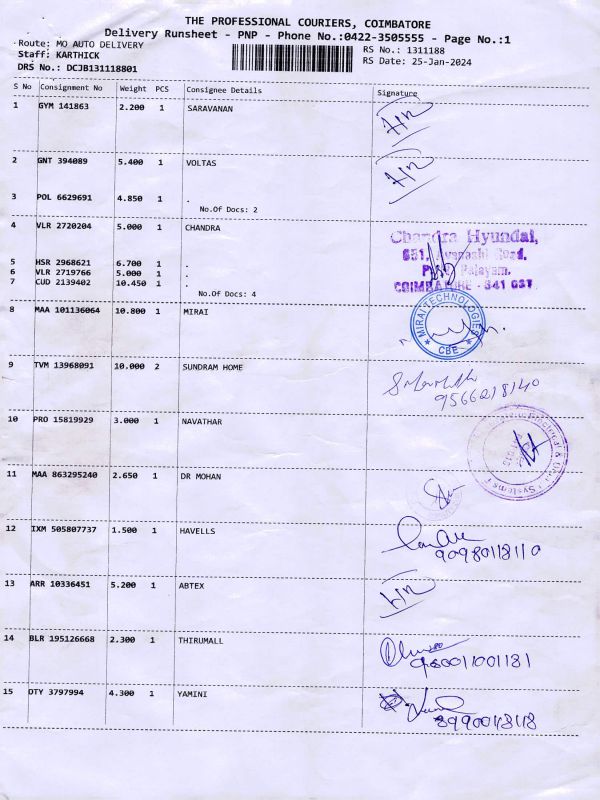 THE PROFESSIONAL COURIERS, COIMBATORE
Delivery Runsheet - PNP - Phone No.:0422-3505555 - Page No.:1
Route: MO AUTO DELIVERY
Staff: KARTHICK
DRS No.: DCJB131118801
RS No.: 1311188
RS Date: 25-Jan-2024
S No Consignment No Weight PCS Consignee Details Signature
1 GYM 141863 2.200 1 SARAVANAN
2 GNT 394089 5.400 1 VOLTAS
3 POL 6629691 4.850 1 .
No.Of Docs: 2
4 VLR 2720204 5.000 1 CHANDRA
Chandra Hyundai,
651, Avanashi Road,
Palayam.
COIMBATORE - 641 037
5 HSR 2968621 6.700 1 .
6 VLR 2719766 5.000 1 .
7 CUD 2139402 10.450 1 .
No.Of Docs: 4
8 MAA 101136064 10.800 1 MIRAI
MIRAI TECHNOLOGIES
★ CBE ★
9 TVM 13968091 10.000 2 SUNDRAM HOME
9566218140
10 PRO 15819929 3.000 1 NAVATHAR
11 MAA 863295240 2.650 1 DR MOHAN
12 IXM 505807737 1.500 1 HAVELLS
90980118110
13 ARR 10336451 5.200 1 ABTEX
14 BLR 195126668 2.300 1 THIRUMALL
15 OTY 3797994 4.300 1 YAMINI